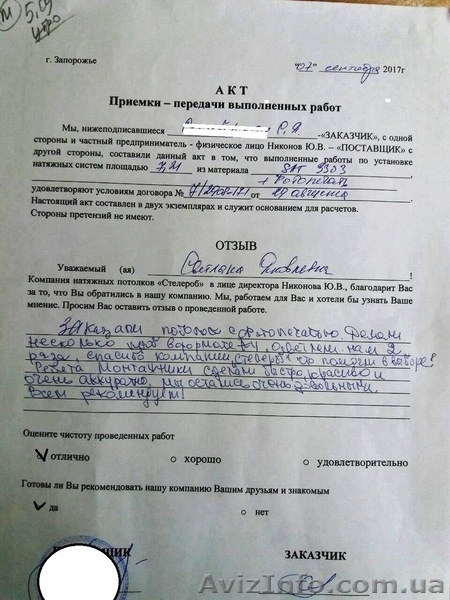 5.09
г. Запорожье "07" сентября 2017г
А К Т
Приемки – передачи выполненных работ
Мы, нижеподписавшиеся С.Я -«ЗАКАЗЧИК», с одной
стороны и частный предприниматель - физическое лицо Никонов Ю.В. – «ПОСТАВЩИК» с
другой стороны, составили данный акт в том, что выполненные работы по установке
натяжных систем площадью 7,21 из материала SAT 9303
+ Фотопечать
удовлетворяют условиям договора № от 29 августа
Настоящий акт составлен в двух экземплярах и служит основанием для расчетов.
Стороны претензий не имеют.
ОТЗЫВ
Уважаемый (ая) Светлана Яковлевна
Компания натяжных потолков «Стелероб» в лице директора Никонова Ю.В., благодарит Вас
за то, что Вы обратились в нашу компанию. Мы, работаем для Вас и хотели бы узнать Ваше
мнение. Просим Вас оставить отзыв о проведенной работе.
Заказали потолок с фотопечатью Делали
несколько раз 2
раза, спасибо компании стелероб что помогли в выборе!
Ребята монтажники сделали быстро, красиво и
очень аккуратно, мы остались очень довольными.
Всем рекомендуем!
Оцените чистоту проведенных работ
отлично о хорошо о удовлетворительно
Готовы ли Вы рекомендовать нашу компанию Вашим друзьям и знакомым
да о нет
ЧИК ЗАКАЗЧИК
AvizInfo.com.ua